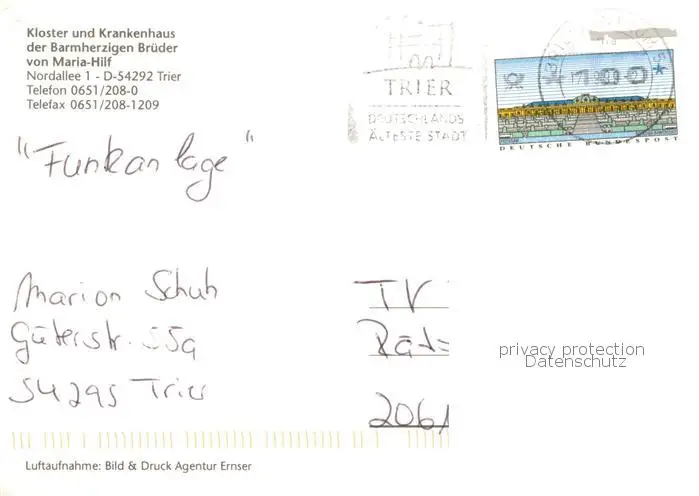 Kloster und Krankenhaus
der Barmherzigen Brüder
von Maria-Hilf
Nordallee 1 - D-54292 Trier
Telefon 0651/208-0
Telefax 0651/208-1209
TRIER
DEUTSCHLANDS
ÄLTESTE STADT
100
DEUTSCHE BUNDESPOST
"Funkanlage"
Marion Schuh
Güterstr. 55a
54295 Trier
TV
Räts
2061
privacy protection
Datenschutz
Luftaufnahme: Bild & Druck Agentur Ernser